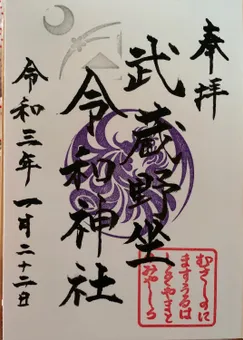 奉拝
武蔵野坐
令和神社
令和三年一月二十二日
むさしのに
ますうるは
しきやまと
みやしろ